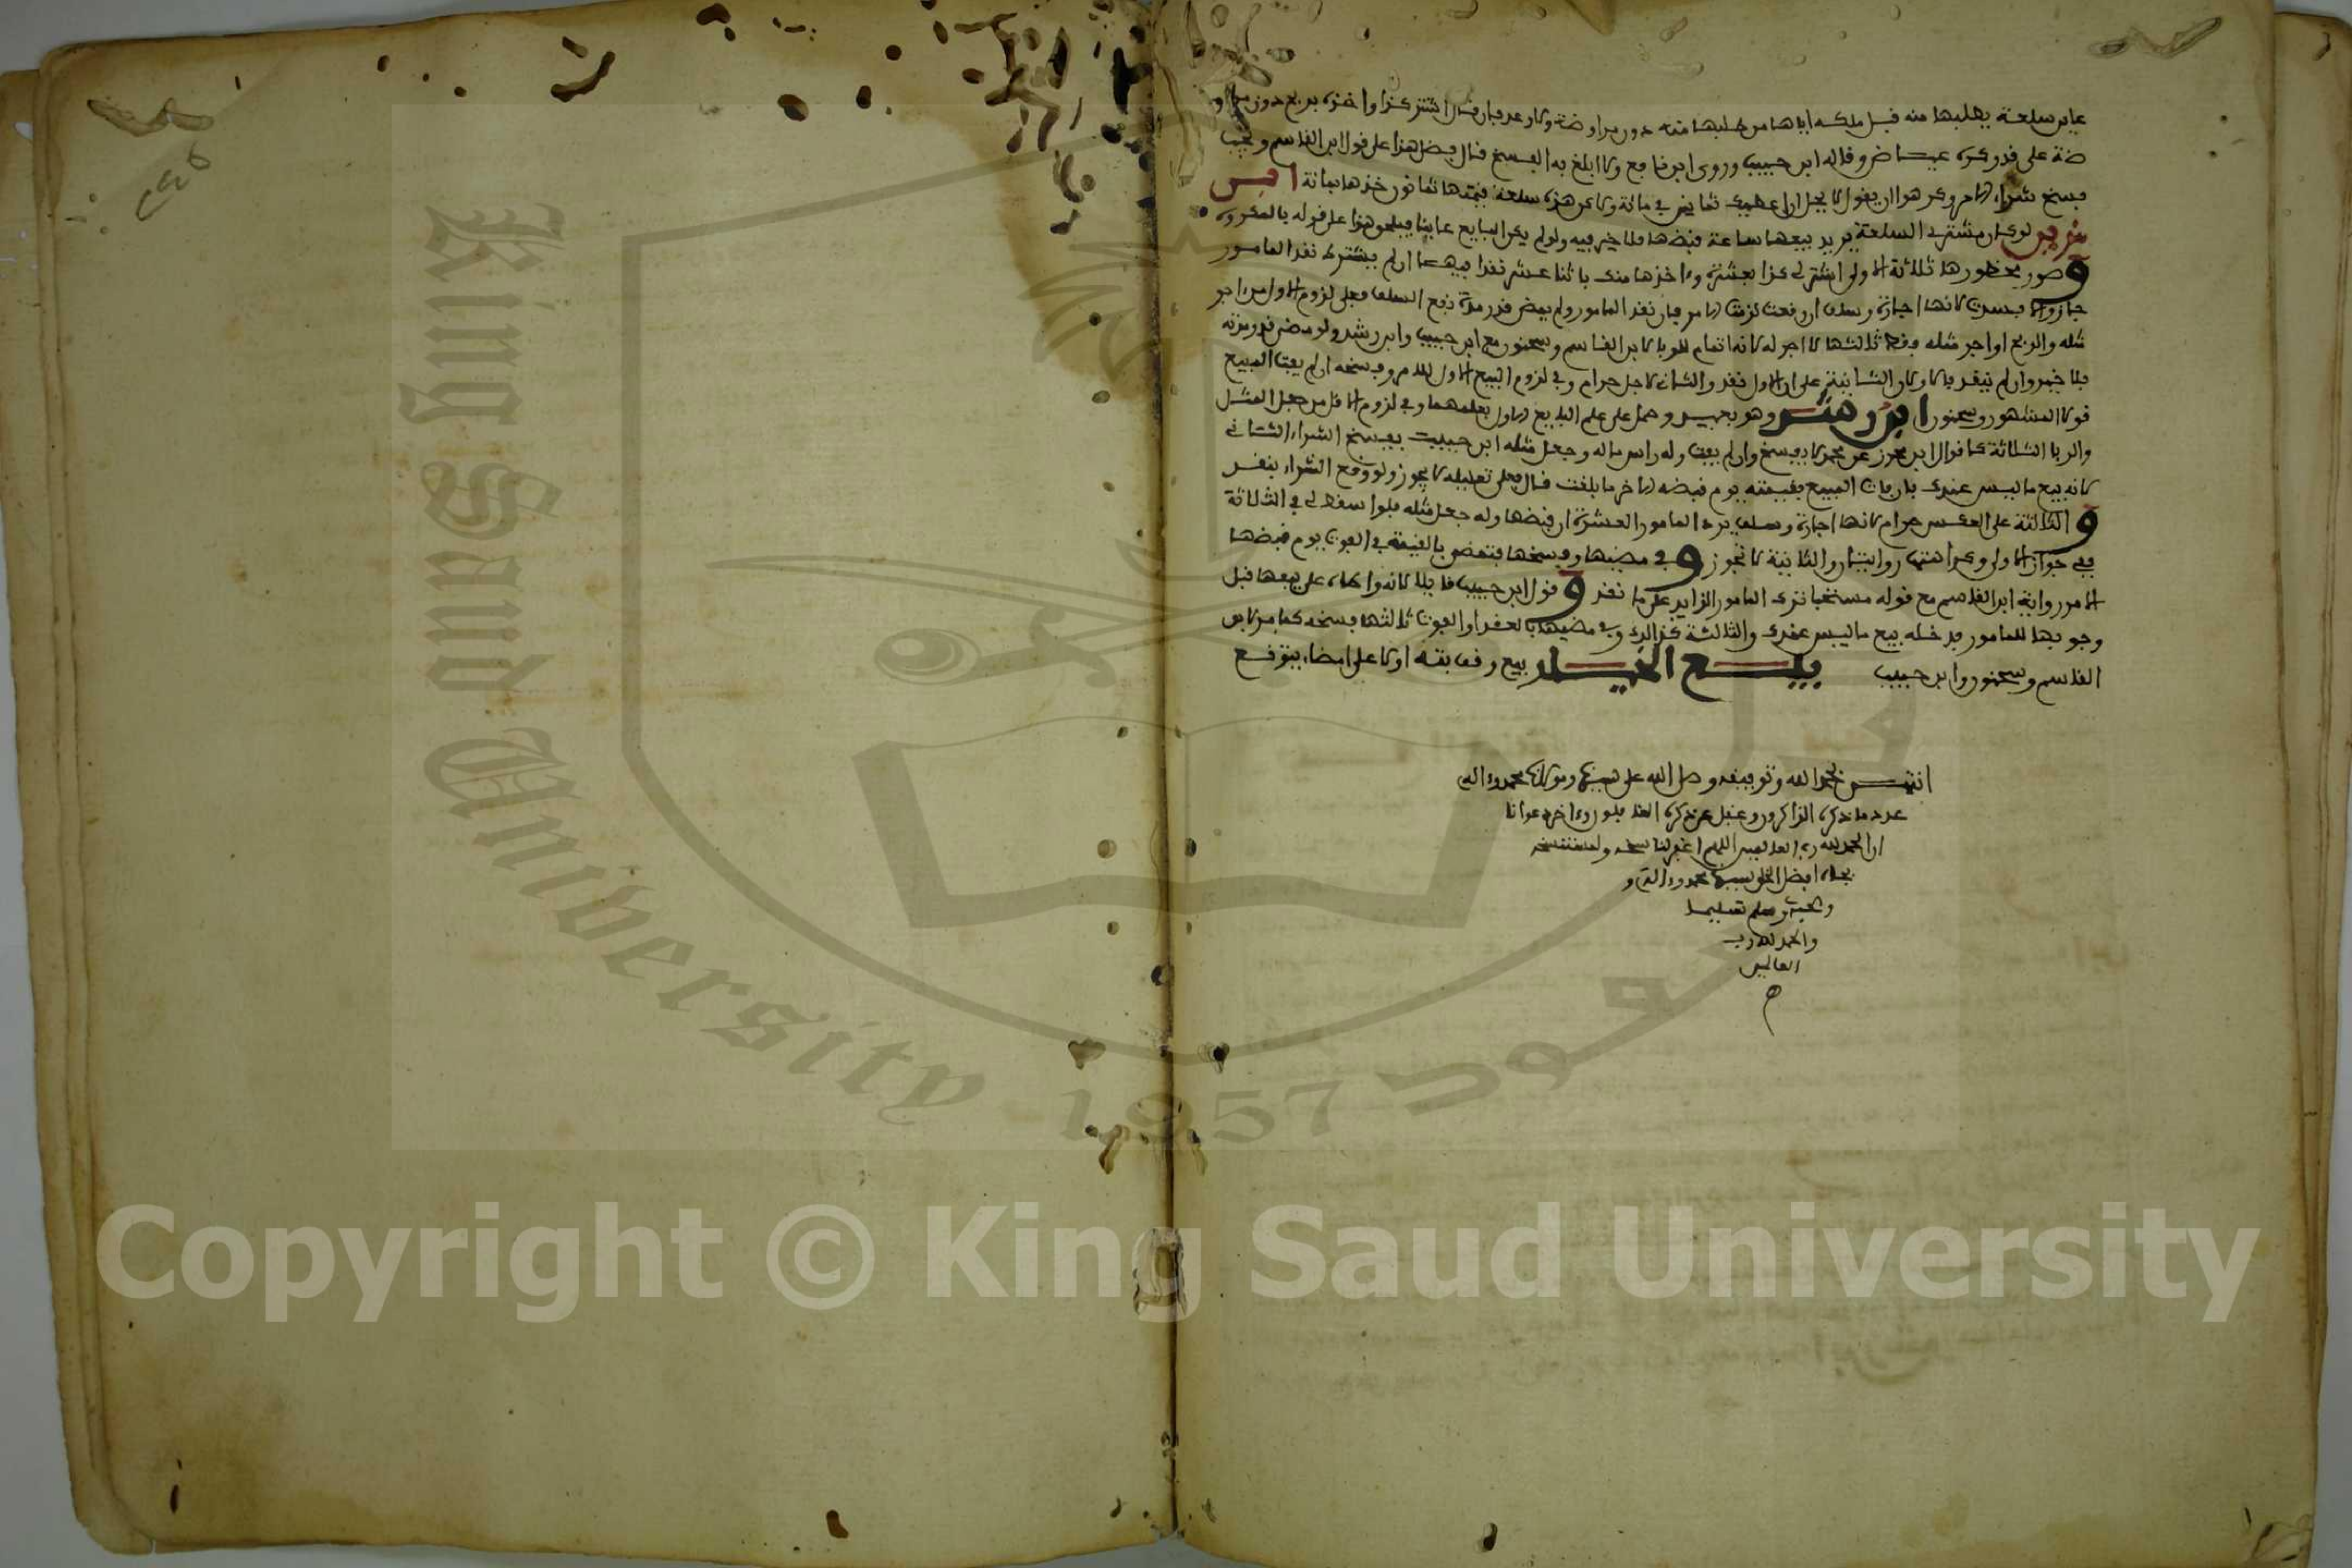 عاين سلعة يطلبها منه قبل ملكه اياها من طلبها منه دون مراوضة ولا وعد فان قال اشتر كذا واخذه بربح دون مراو
ضة على قدره كره عياض وقاله ابن حبيب وروى ابن نافع ولا ابلغ به الفسخ قال فضل هذا على قول ابن القاسم ويجب
فسخ شراء الامر وكرهوا ان يقول لا يحل ان اعطيك ثمانين في مائة ولاكن هذه سلعة قيمتها ثمانون خذها بمائة ابن
مزين لو كان مشتري السلعة يريد بيعها ساعة قبضها فلا خير فيه ولو لم يكن البايع عاينا فيلحق هذا على قوله بالمكروه
وصور محظورها ثلاثة الاولى اشتر لي كذا بعشرة وءاخذها منك باثنا عشر نقدا فيهما ان لم يشترط نقد المامور
جاز والا فسدت لانها اجارة وسلف ان وقعت لزمت الامر فان نقد المامور ولم يمض قدر مدة نفع السلف فعلى لزوم الاول من اجر
مثله والربح او اجر مثله فقط ثالثها لا اجر له لانه اتمام للربا لابن القاسم وسحنون مع ابن حبيب وابن رشد ولو مضى قدر مدته
فلا خير وان لم ينقد فلا وكان الثانية على ان الاول نقد والثاني لاجل حرام وفي لزوم البيع الاول للامر وفسخه ان لم يفت المبيع
قولا المشهور وسحنون ابن رشد وهو بعيد وحمل على علم البايع الاول بعلمهما وفي لزوم الاقل من جعل المثل
والربا الثلاثة كما قوال ابن محرز عن محمد لا يفسخ وان لم يفت وله راس ماله وجعل مثله ابن حبيب يفسخ الشراء الثاني
لانه بيع ما ليس عندك فان فات المبيع بقيمته يوم قبضه الاخر ما بلغت قال فعلى تعليله لا يجوز ولو وقع الشراء بنقد
والثالثة على العكس حرام لانها اجارة وسلف يرد المامور العشرة ان قبضها وله جعل مثله فلو اسقط لي في الثلاثة
ففي جواز الاولى وكراهتها روايتان والثانية لا تجوز وفي مضيها وفسخها فتمضى بالقيمة في الفوت يوم قبضها
الامر رواية ابن القاسم مع قوله مستحبا ترك المامور الزايد على ما نقد وقول ابن حبيب قايلا لانه واطاه على بيعها قبل
وجوبها للمامور فدخله بيع ما ليس عندك والثالثة كذالك وفي مضيها بالعقد او الفوت ثالثها فسخه كما مر لابن
القاسم وسحنون وابن حبيب بيع الخيار بيع وقف بته اولا على امضاء يتوقع
انتهى بحمد الله وتوفيقه وصلى الله على نبينا ومولانا محمد وءاله
عدد ما ذكره الذاكرون وغفل عن ذكره الغافلون وءاخر دعوانا
ان الحمد لله رب العالمين اللهم اغفر لناسخه ولمستنسخه
بجاه افضل الخلق سيدنا محمد وءاله و
وصحبه وسلم تسليما
والحمد لله رب
العالمين
King Saud University 1957
Copyright © King Saud University